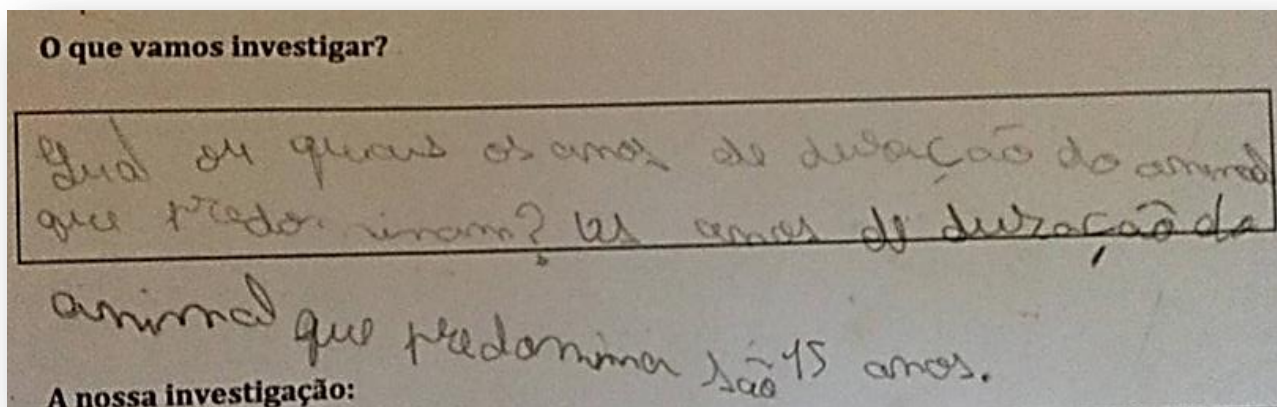 O que vamos investigar?
Qual ou quais os anos de duração do animal
que predominam? Os anos de duração do
animal que predomina são 15 anos.
A nossa investigação: